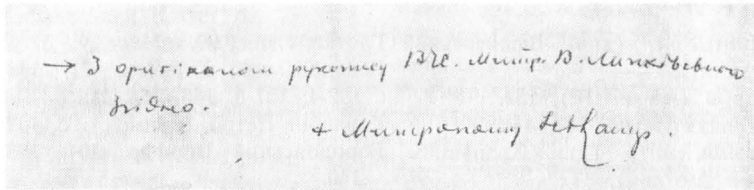 → З оригіналом рукопису ВЧ. Митр. В. Липківського
згідно.
+ Митрополит